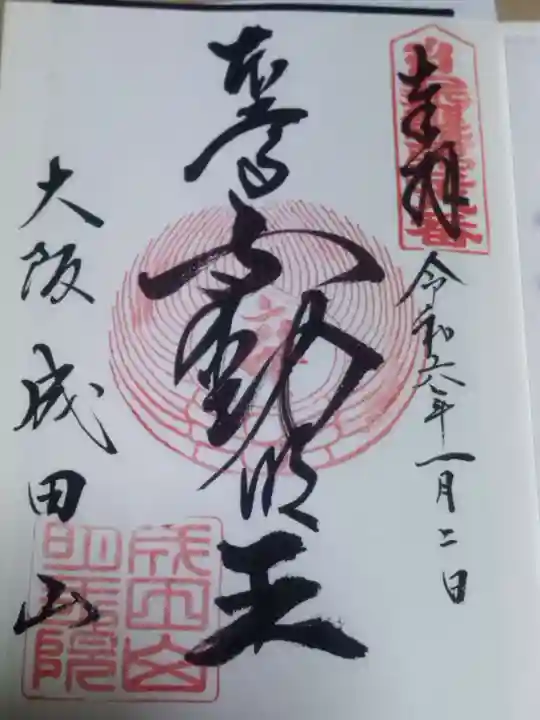 奉拝
令和六年一月二日
本尊
不動明王
大阪成田山
成田山
明王院